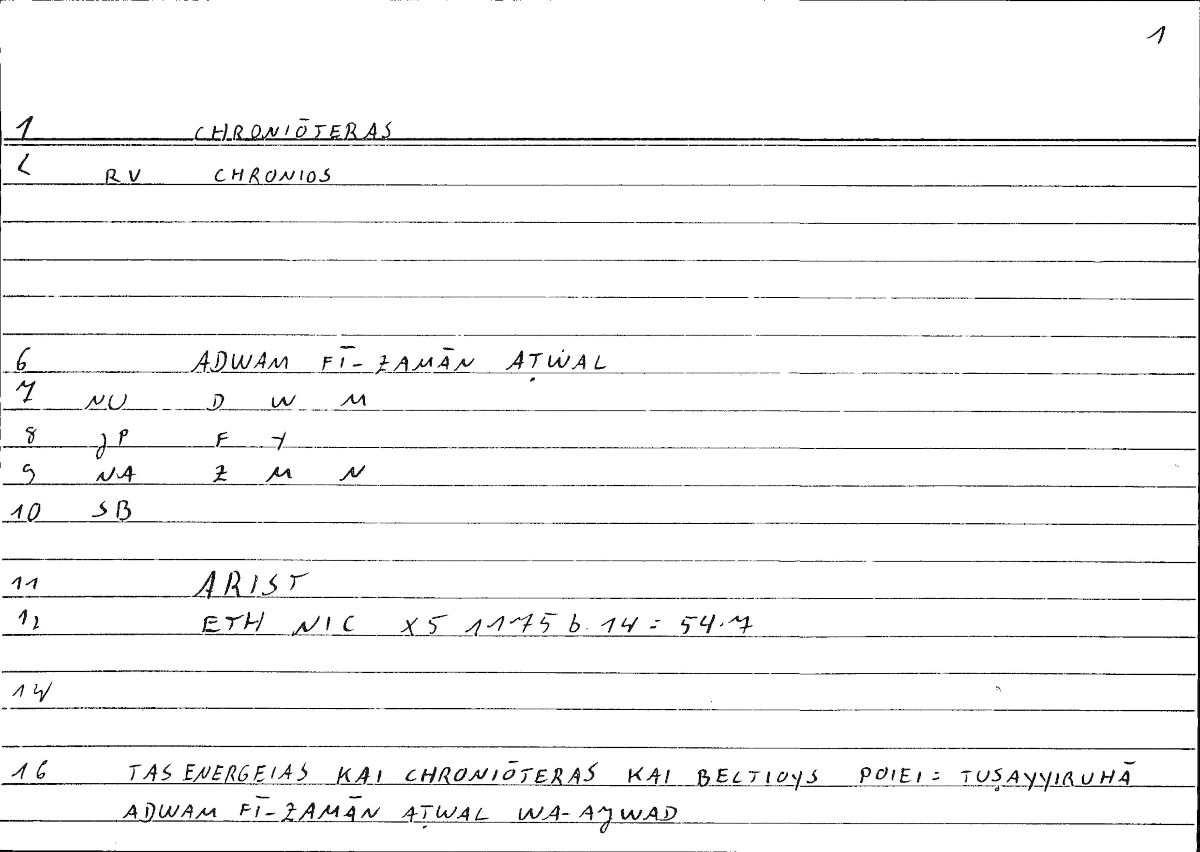 1
1 CHRONIŌTERAS
2 RV CHRONIOS
6 ADWAM FĪ-ZAMĀN AṬWAL
7 NU D W M
8 JP F Y
9 NA Z M N
10 SB
11 ARIST
12 ETH NIC X5 1175 b 14 = 54.7
14
16 TAS ENERGEIAS KAI CHRONIŌTERAS KAI BELTIOYS POIEI = TUṢAYYIRUHĀ
ADWAM FĪ-ZAMĀN AṬWAL WA-AJWAD